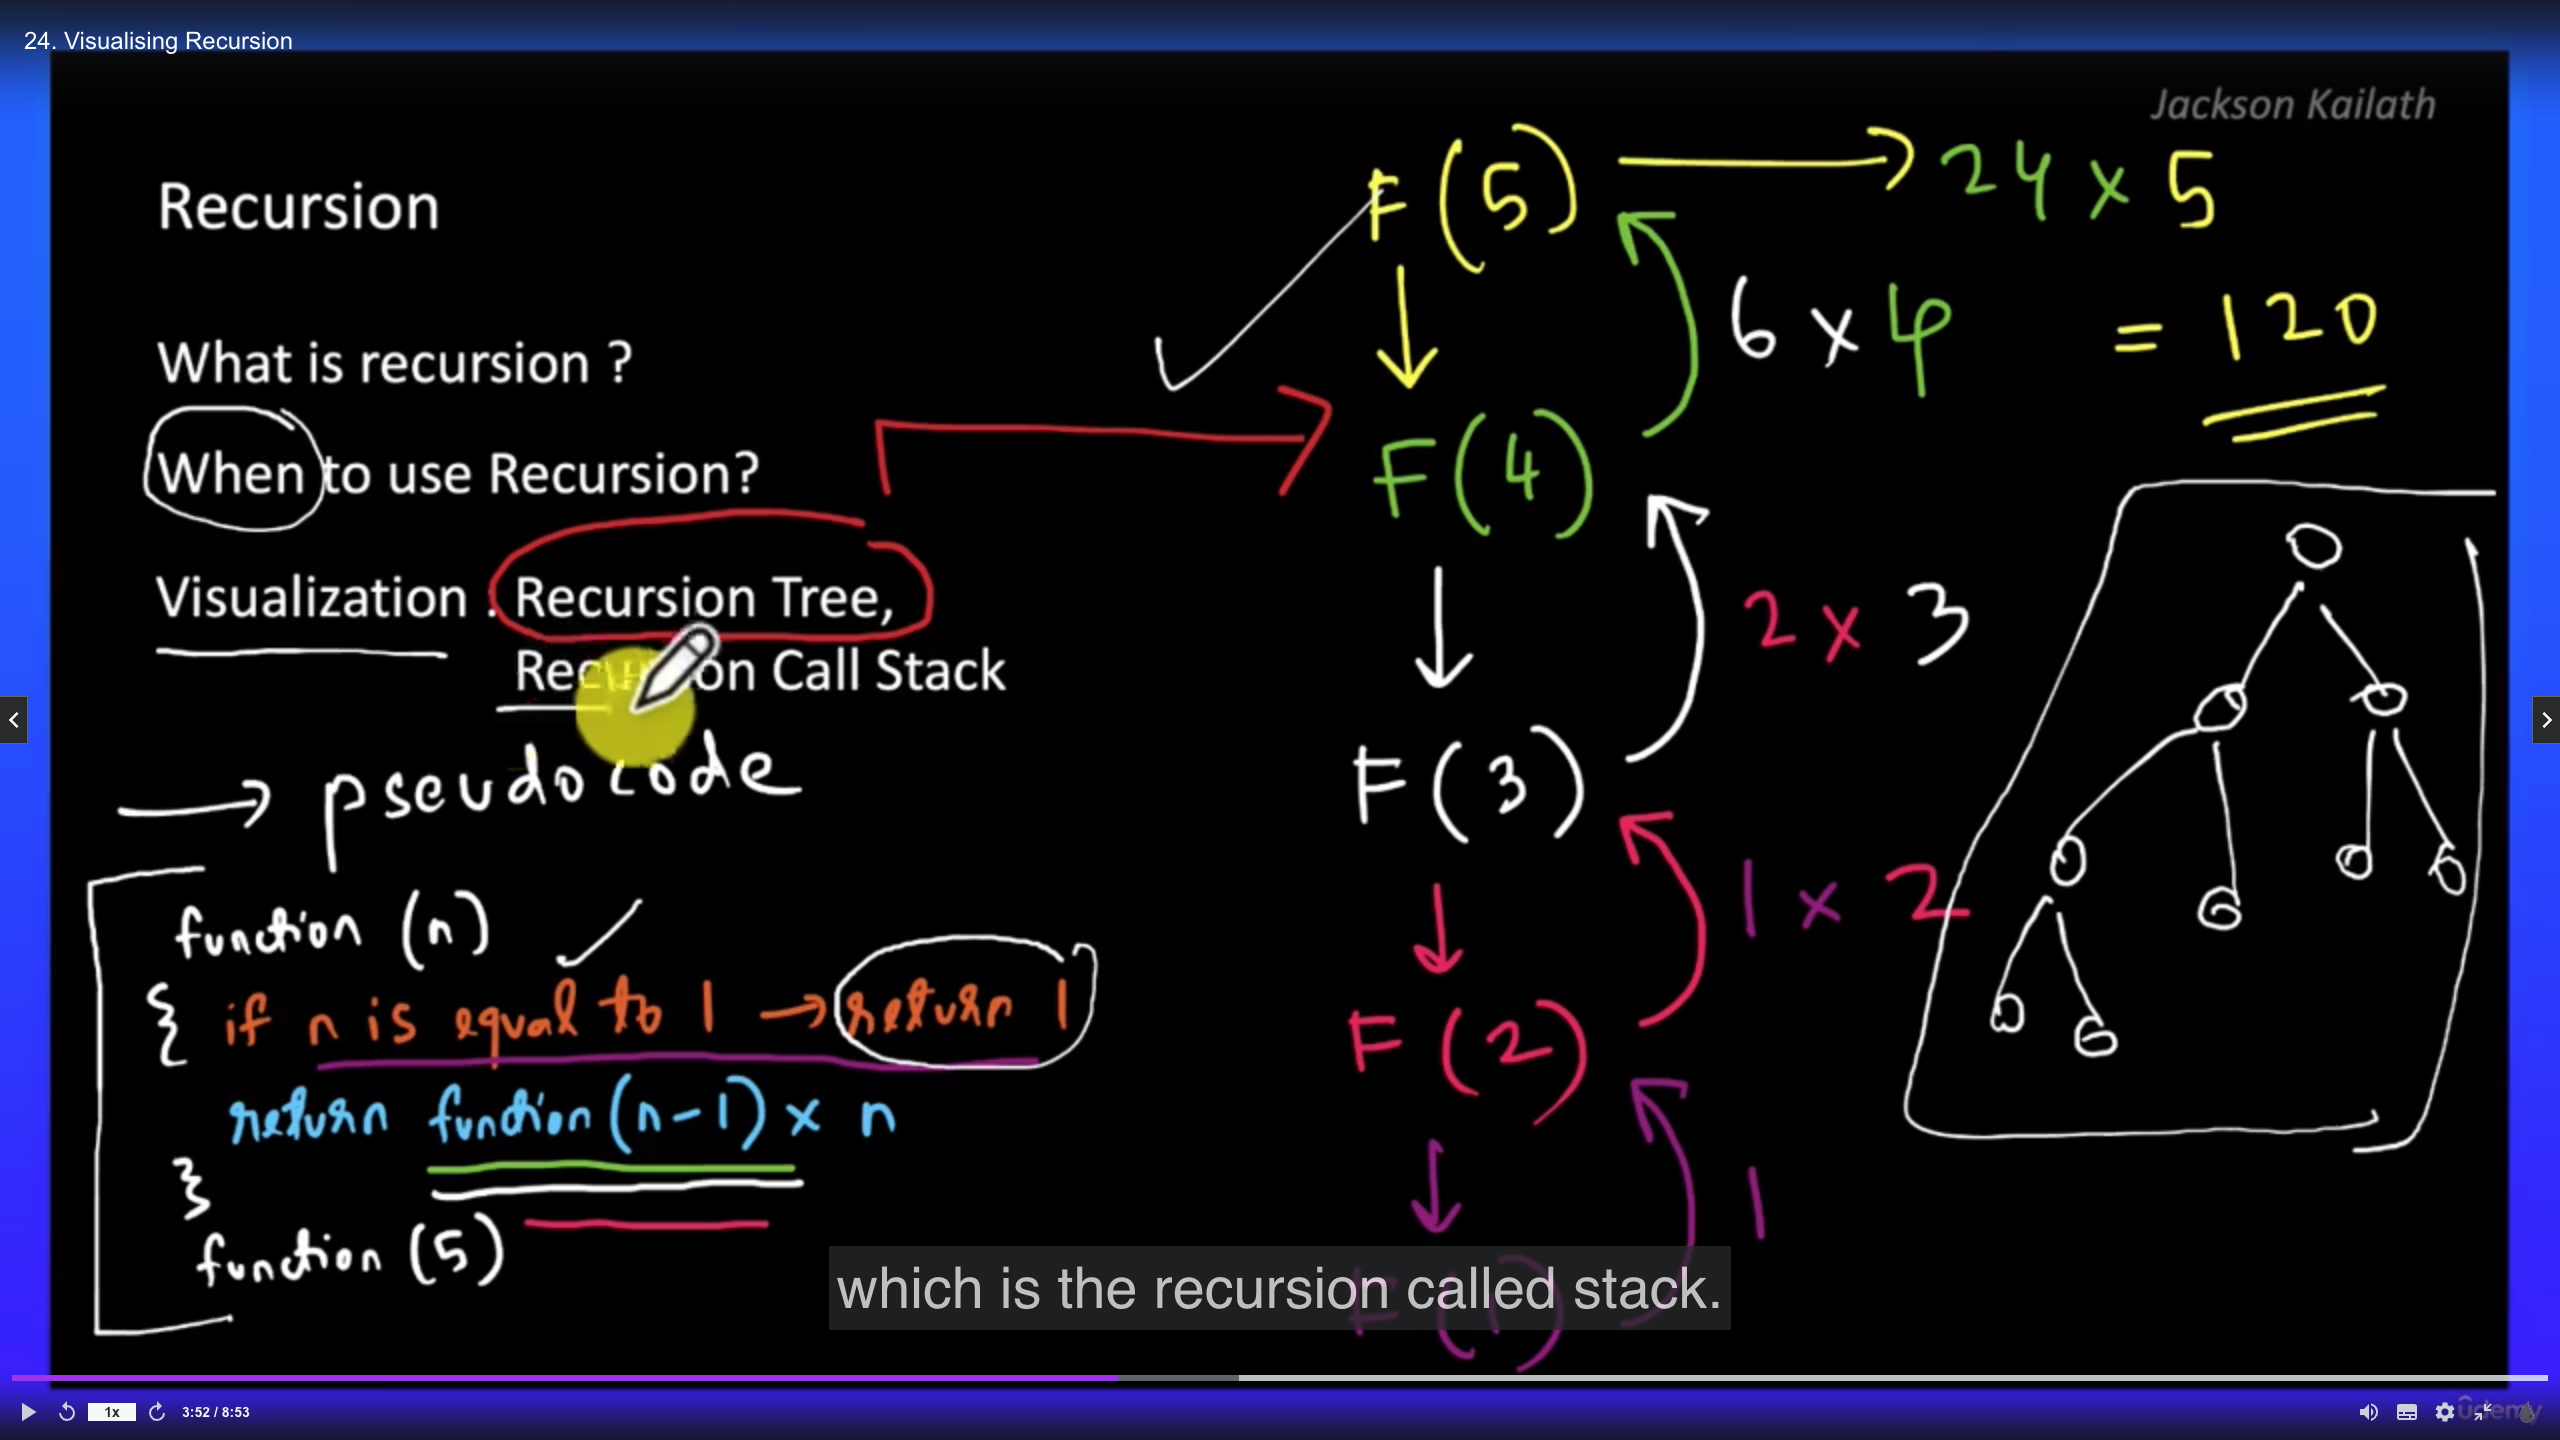 24. Visualising Recursion
Jackson Kailath
Recursion
What is recursion ?
When to use Recursion?
Visualization : Recursion Tree,
Recursion Call Stack
→ pseudo code
function (n)
{ if n is equal to 1 → return 1
return function (n-1) x n
}
function (5)
F (5) → 24 x 5
= 120
6 x 4
F (4)
2 x 3
F (3)
1 x 2
F (2)
1
F (1)
which is the recursion called stack.
1x
3:52 / 8:53
ûdemy